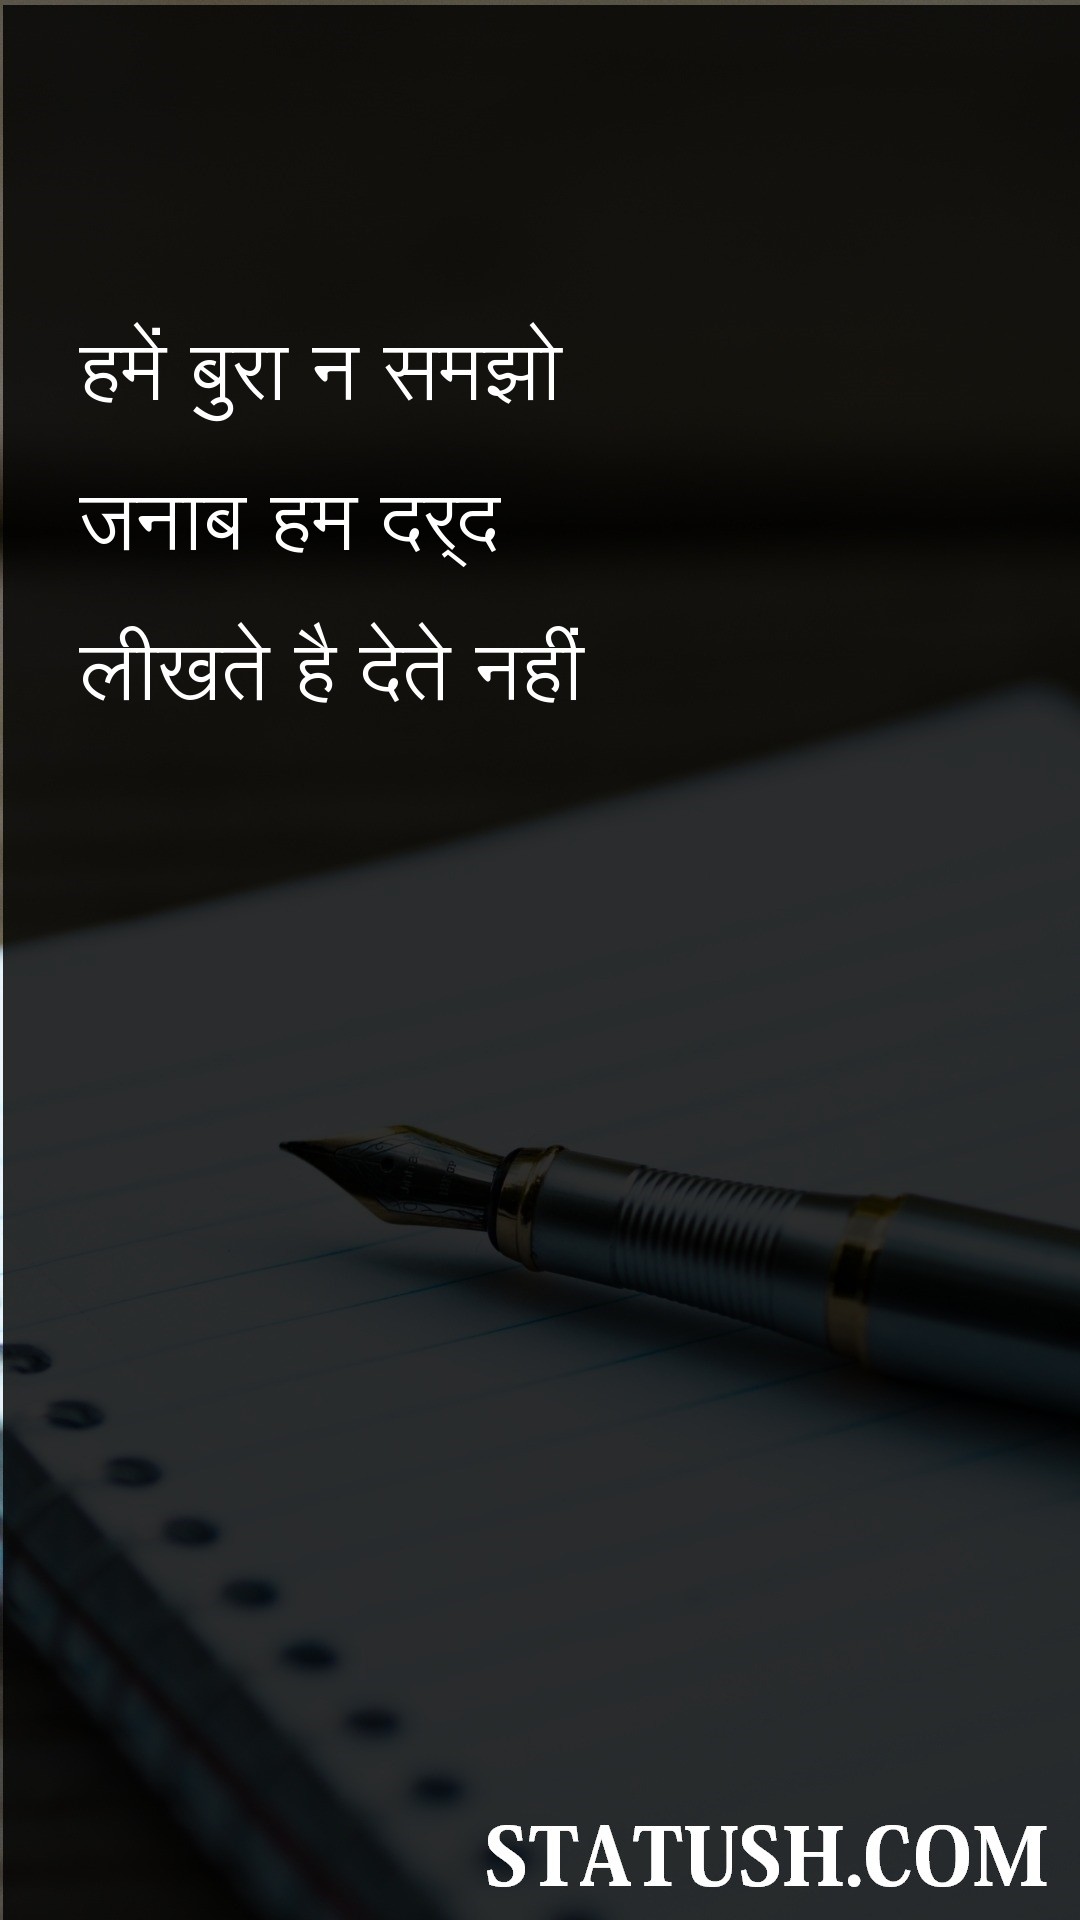 हमें बुरा न समझो
जनाब हम दर्‌द
लीखते है देते नहीं
STATUSH.COM